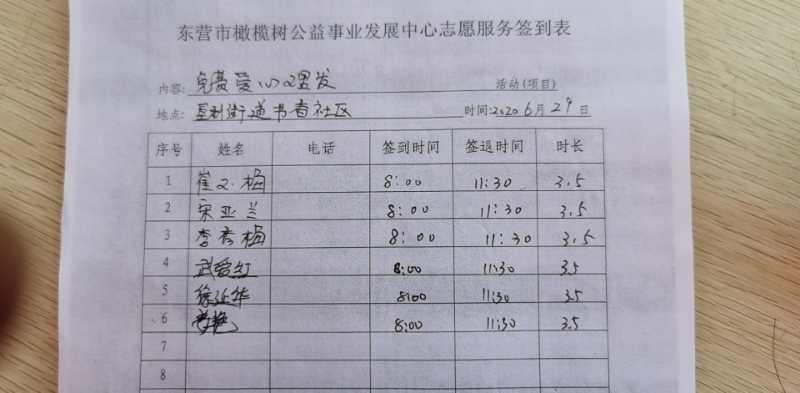 东营市橄榄树公益事业发展中心志愿服务签到表
内容: 免费爱心理发 活动(项目)
地点: 垦利街道书香社区 时间:2020 6月29日
序号 姓名 电话 签到时间 签退时间 时长
1 崔文梅 8:00 11:30 3.5
2 宋亚兰 8:00 11:30 3.5
3 李秀梅 8:00 11:30 3.5
4 武爱红 8:00 11:30 3.5
5 徐延华 8:00 11:30 3.5
6 8:00 11:30 3.5
7
8